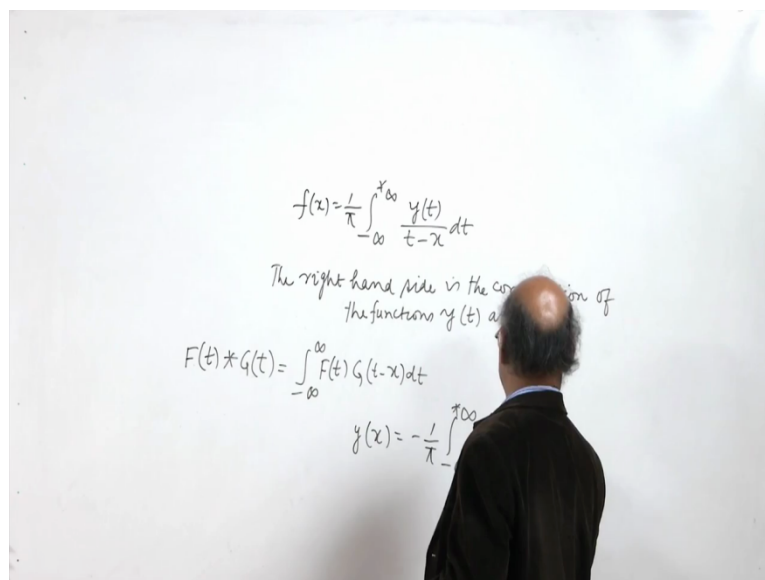 f(x) = 1/π ∫_{-∞}^{*∞} y(t)/(t-x) dt
The right hand side is the of
the functions y(t)
F(t) * G(t) = ∫_{-∞}^{∞} F(t) G(t-x) dt
y(x) = -1/π ∫^{*∞}